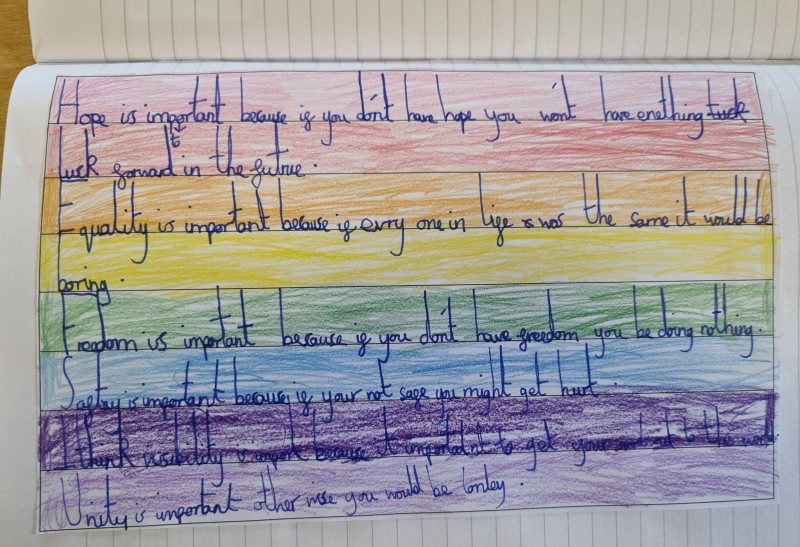 Hope is important because if you don't have hope you won't have enething
Luck forward in the futrue.
Equality is important because if evry one in life was the same it would be
boring.
Freadom is important because if you don't have freedom you be doing nothing.
Saftey is important because if your not safe you might get hurt
I think visibility is import because it important to get your out to the world
Unity is important other wise you would be lonley.